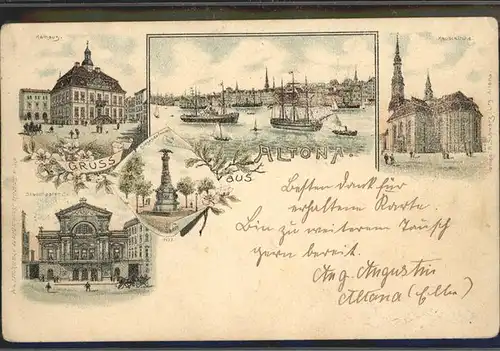 Rathaus.
Hauptkirche.
GRUSS
AUS
ALTONA.
Besten Dank für
erhaltene Karte.
Bin zu weiterem Tausch
gern bereit.
Aug. Augustin
Altona (Elbe)